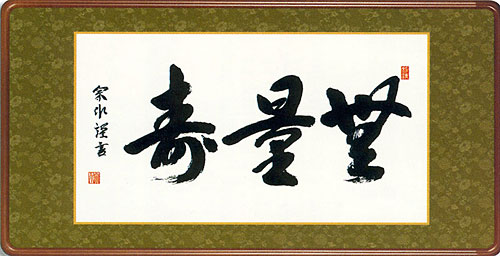 無量寿
宗水謹書